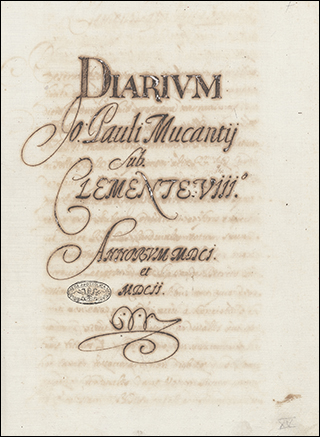 DIARIVM
Jo: Pauli Mucantij
Sub.
CLEMENTE. VIII.º
ANNORVM MDCI.
et
MDCII.